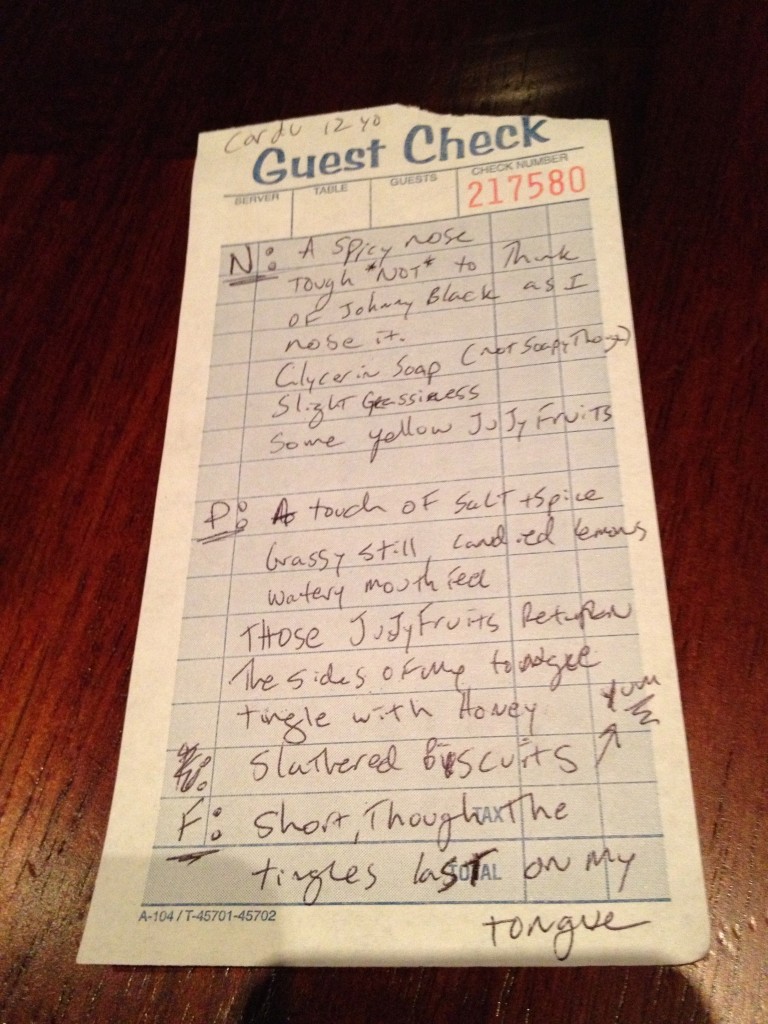 Cardu 12 yo
Guest Check
SERVER TABLE GUESTS CHECK NUMBER
217580
N: A spicy nose
Tough *NOT* to Think
of Johnny Black as I
nose it.
Glycerin Soap (not soapy Though)
Slight Grassiness
Some yellow JuJyFruits
P: A touch of Salt + Spice
Grassy still, candied lemons
watery mouth feel
THOSE JuJyFruits Return
The sides of my tongue
tingle with Honey yum
Slathered Biscuits
F: Short, Though The
TAX
tingles last on my
TOTAL
tongue
A-104 / T-45701-45702